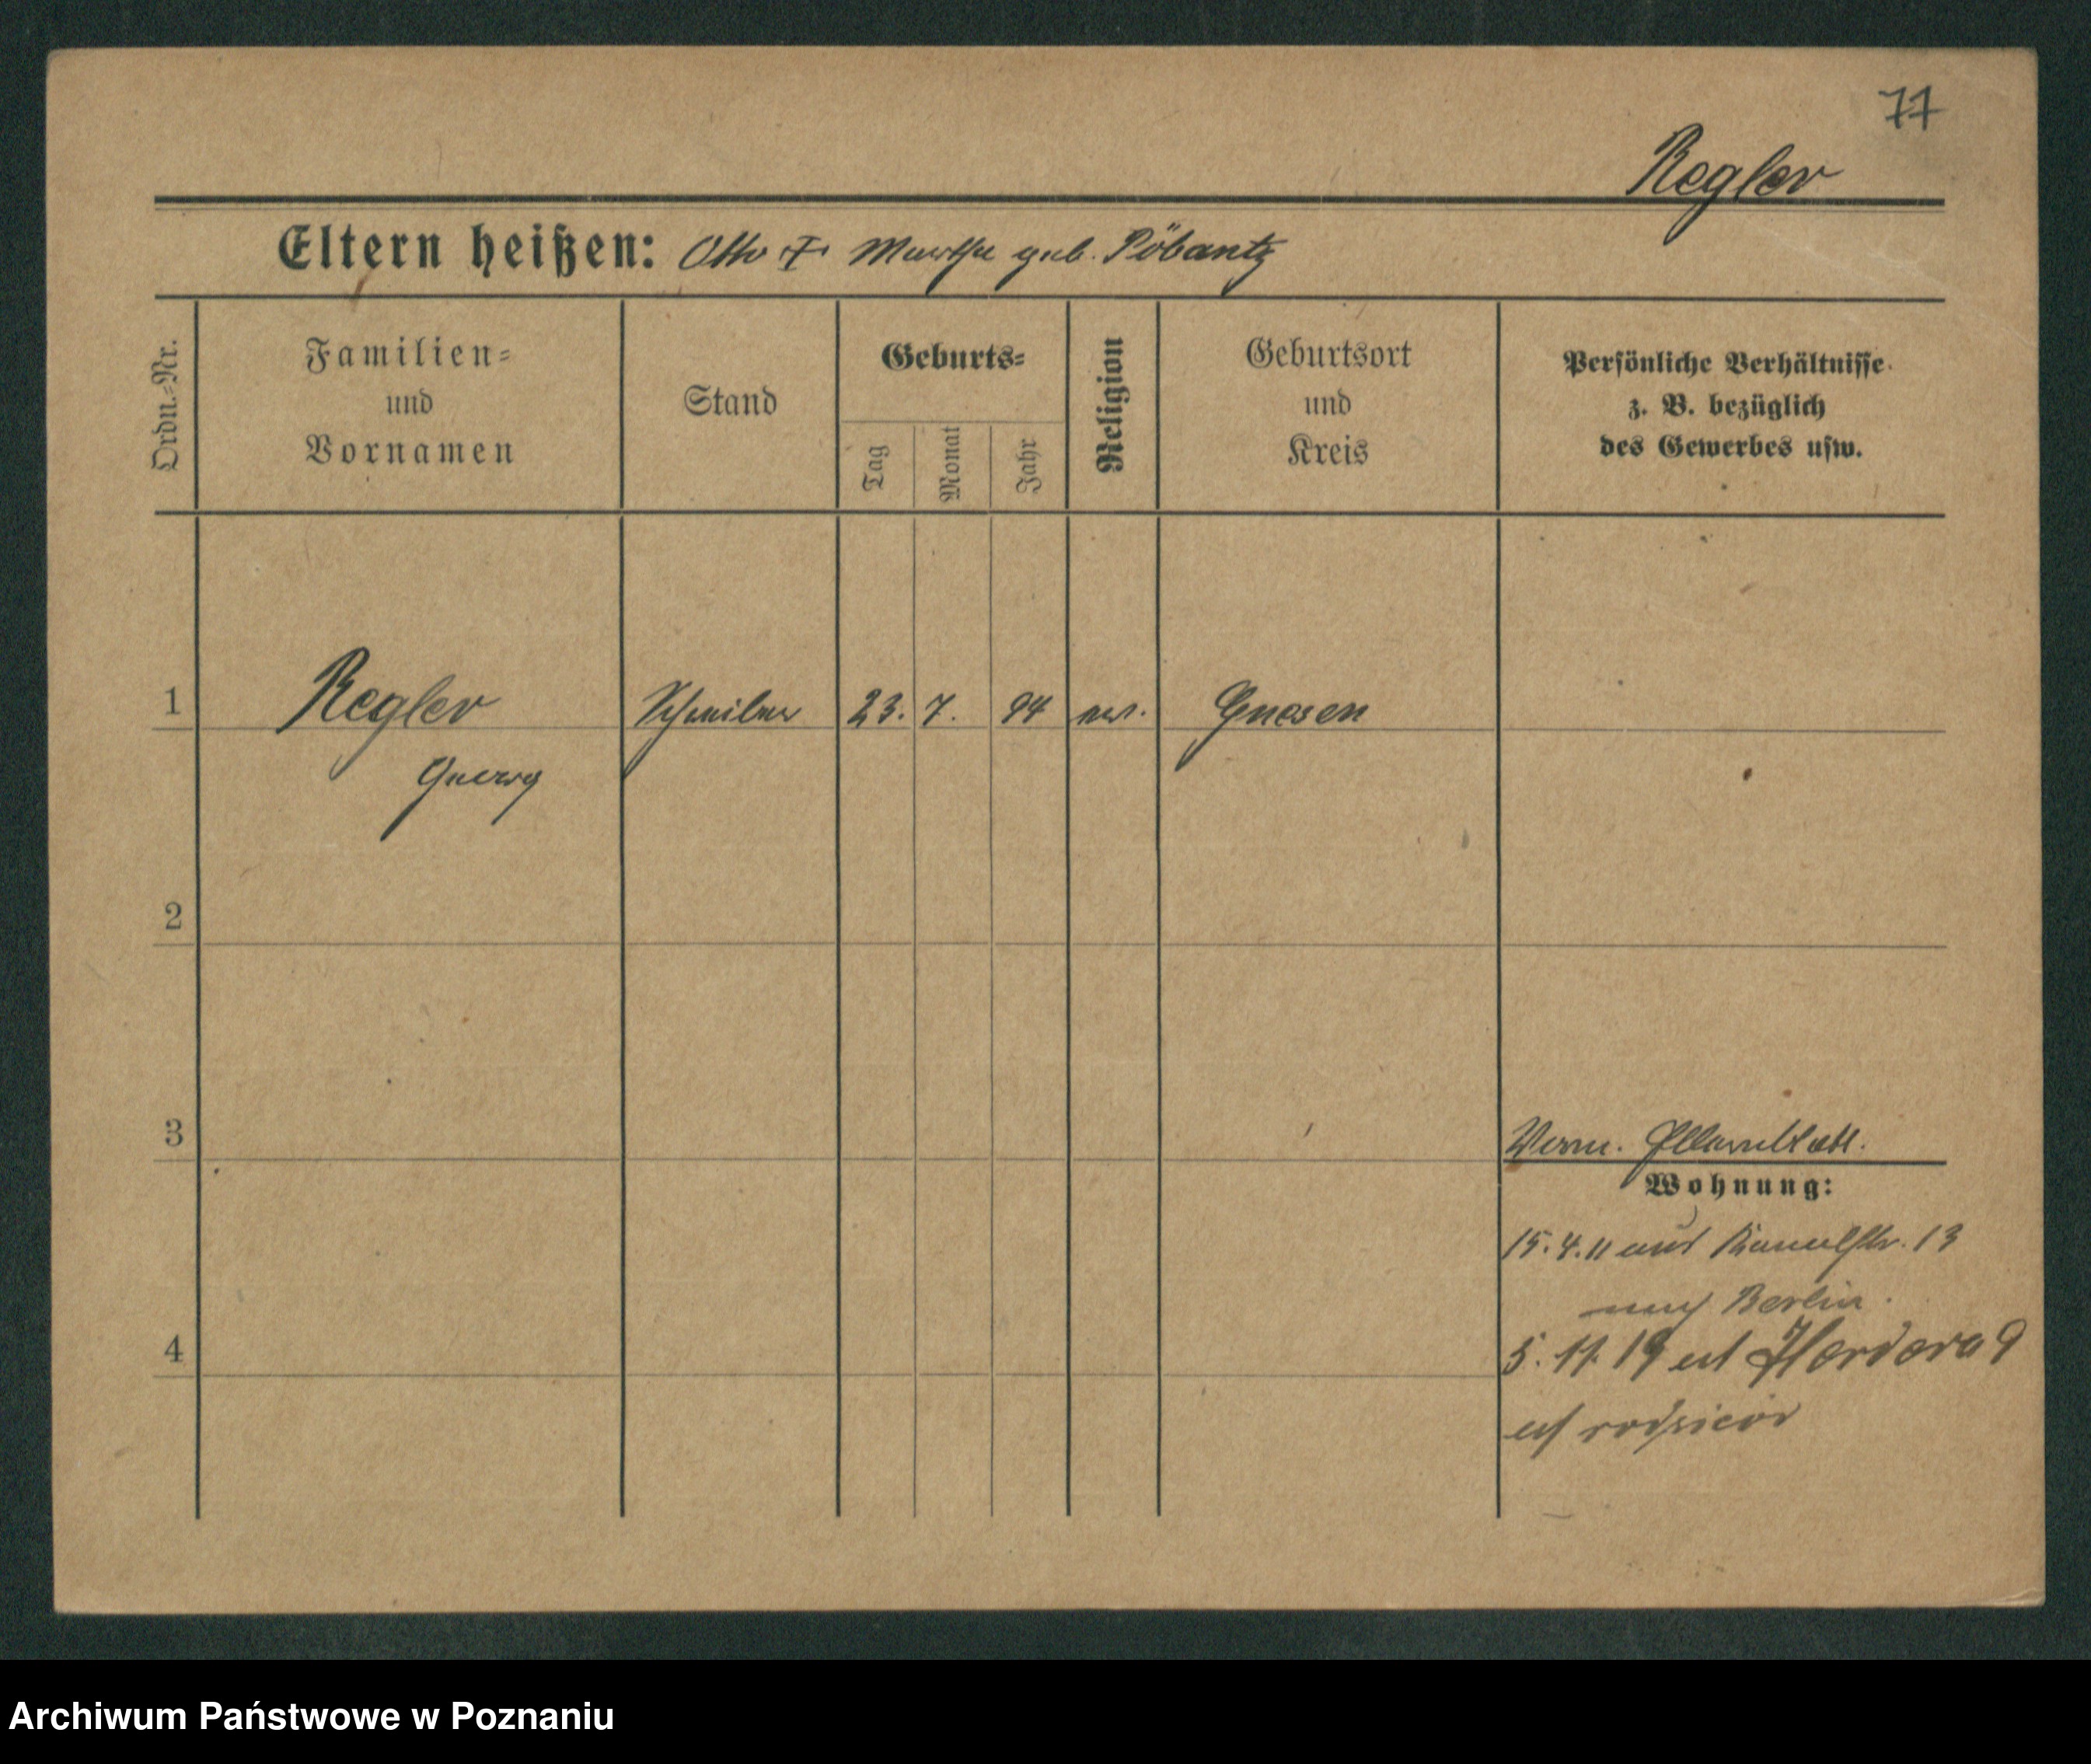 77
Regler
Eltern heißen: Otto † Martha geb. Pöbantz
Ordn.-Nr.
Familien-
und
Vornamen
Stand
Geburts-
Tag
Monat
Jahr
Religion
Geburtsort
und
Kreis
Persönliche Verhältnisse
z. B. bezüglich
des Gewerbes usw.
1 Regler Schreiber 23. 7. 94 ev. Gnesen
Georg
2
3
Verm.
Wohnung:
15.4.11 aus Kanalstr. 13
nach Berlin.
4
5. 11. 19 ul Herdera 9
Archiwum Państwowe w Poznaniu